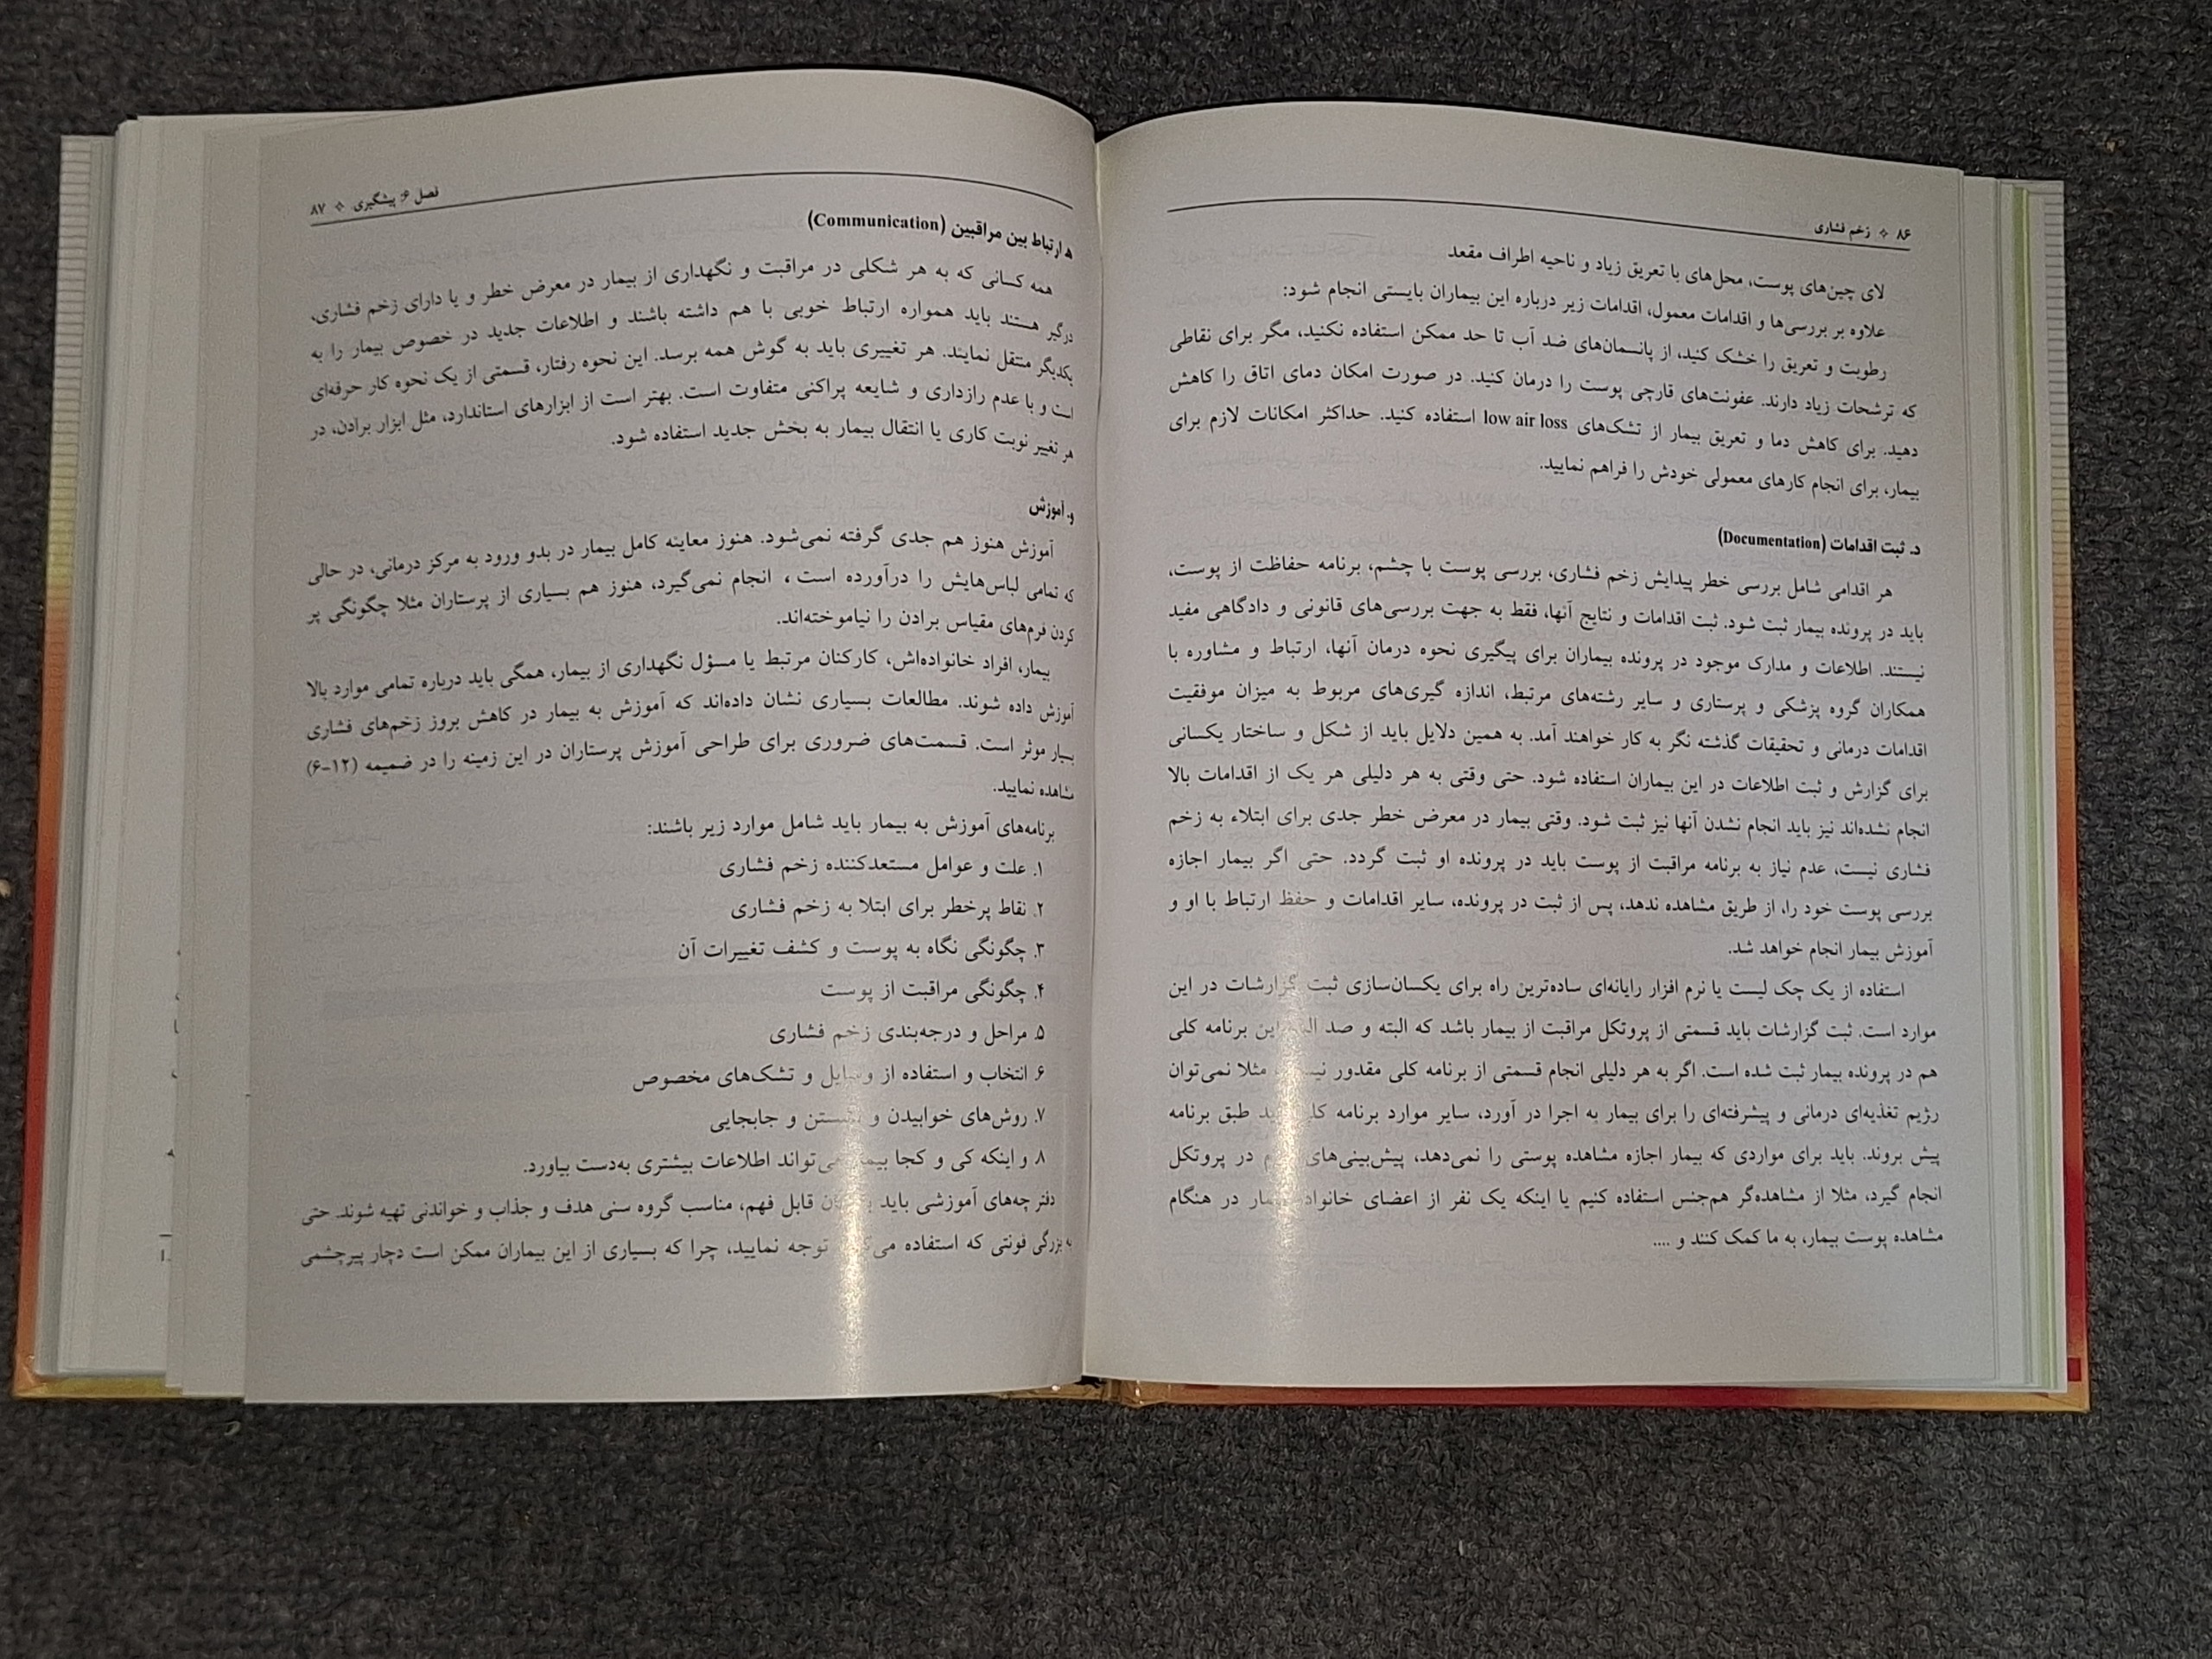 ۸۶ ❖ زخم فشاری
لای چین‌های پوست، محل‌های با تعریق زیاد و ناحیه اطراف مقعد
علاوه بر بررسی‌ها و اقدامات معمول، اقدامات زیر درباره این بیماران بایستی انجام شود:
رطوبت و تعریق را خشک کنید، از پانسمان‌های ضد آب تا حد ممکن استفاده نکنید، مگر برای نقاطی
که ترشحات زیاد دارند. عفونت‌های قارچی پوست را درمان کنید. در صورت امکان دمای اتاق را کاهش
دهید. برای کاهش دما و تعریق بیمار از تشک‌های low air loss استفاده کنید. حداکثر امکانات لازم برای
بیمار، برای انجام کارهای معمولی خودش را فراهم نمایید.
د. ثبت اقدامات (Documentation)
هر اقدامی شامل بررسی خطر پیدایش زخم فشاری، بررسی پوست با چشم، برنامه حفاظت از پوست،
باید در پرونده بیمار ثبت شود. ثبت اقدامات و نتایج آنها، فقط به جهت بررسی‌های قانونی و دادگاهی مفید
نیستند. اطلاعات و مدارک موجود در پرونده بیماران برای پیگیری نحوه درمان آنها، ارتباط و مشاوره با
همکاران گروه پزشکی و پرستاری و سایر رشته‌های مرتبط، اندازه گیری‌های مربوط به میزان موفقیت
اقدامات درمانی و تحقیقات گذشته نگر به کار خواهند آمد. به همین دلایل باید از شکل و ساختار یکسانی
برای گزارش و ثبت اطلاعات در این بیماران استفاده شود. حتی وقتی به هر دلیلی هر یک از اقدامات بالا
انجام نشده‌اند نیز باید انجام نشدن آنها نیز ثبت شود. وقتی بیمار در معرض خطر جدی برای ابتلاء به زخم
فشاری نیست، عدم نیاز به برنامه مراقبت از پوست باید در پرونده او ثبت گردد. حتی اگر بیمار اجازه
بررسی پوست خود را، از طریق مشاهده ندهد، پس از ثبت در پرونده، سایر اقدامات و حفظ ارتباط با او و
آموزش بیمار انجام خواهد شد.
استفاده از یک چک لیست یا نرم افزار رایانه‌ای ساده‌ترین راه برای یکسان‌سازی ثبت گزارشات در این
موارد است. ثبت گزارشات باید قسمتی از پروتکل مراقبت از بیمار باشد که البته و صد این برنامه کلی
هم در پرونده بیمار ثبت شده است. اگر به هر دلیلی انجام قسمتی از برنامه کلی مقدور مثلا نمی‌توان
رژیم تغذیه‌ای درمانی و پیشرفته‌ای را برای بیمار به اجرا در آورد، سایر موارد برنامه طبق برنامه
پیش بروند. باید برای مواردی که بیمار اجازه مشاهده پوستی را نمی‌دهد، پیش‌بینی‌های در پروتکل
انجام گیرد، مثلا از مشاهده‌گر هم‌جنس استفاده کنیم یا اینکه یک نفر از اعضای در هنگام
مشاهده پوست بیمار، به ما کمک کنند و ....
فصل ۶: پیشگیری ❖ ۸۷
ه. ارتباط بین مراقبین (Communication)
همه کسانی که به هر شکلی در مراقبت و نگهداری از بیمار در معرض خطر و یا دارای زخم فشاری،
درگیر هستند باید همواره ارتباط خوبی با هم داشته باشند و اطلاعات جدید در خصوص بیمار را به
یکدیگر منتقل نمایند. هر تغییری باید به گوش همه برسد. این نحوه رفتار، قسمتی از یک نحوه کار حرفه‌ای
است و با عدم رازداری و شایعه پراکنی متفاوت است. بهتر است از ابزارهای استاندارد، مثل ابزار برادن، در
هر تغییر نوبت کاری یا انتقال بیمار به بخش جدید استفاده شود.
و. آموزش
آموزش هنوز هم جدی گرفته نمی‌شود. هنوز معاینه کامل بیمار در بدو ورود به مرکز درمانی، در حالی
که تمامی لباس‌هایش را درآورده است، انجام نمی‌گیرد، هنوز هم بسیاری از پرستاران مثلا چگونگی پر
کردن فرم‌های مقیاس برادن را نیاموخته‌اند.
بیمار، افراد خانواده‌اش، کارکنان مرتبط یا مسؤل نگهداری از بیمار، همگی باید درباره تمامی موارد بالا
آموزش داده شوند. مطالعات بسیاری نشان داده‌اند که آموزش به بیمار در کاهش بروز زخم‌های فشاری
بسیار موثر است. قسمت‌های ضروری برای طراحی آموزش پرستاران در این زمینه را در ضمیمه (۱۲-۶)
مشاهده نمایید.
برنامه‌های آموزش به بیمار باید شامل موارد زیر باشند:
۱. علت و عوامل مستعدکننده زخم فشاری
۲. نقاط پرخطر برای ابتلا به زخم فشاری
۳. چگونگی نگاه به پوست و کشف تغییرات آن
۴. چگونگی مراقبت از پوست
۵. مراحل و درجه‌بندی زخم فشاری
۶. انتخاب و استفاده از وسایل و تشک‌های مخصوص
۷. روش‌های خوابیدن و نشستن و جابجایی
۸. و اینکه کی و کجا بیمار می‌تواند اطلاعات بیشتری به‌دست بیاورد.
دفتر چه‌های آموزشی باید قابل فهم، مناسب گروه سنی هدف و جذاب و خواندنی تهیه شوند. حتی
به بزرگی فونتی که استفاده توجه نمایید، چرا که بسیاری از این بیماران ممکن است دچار پیرچشمی